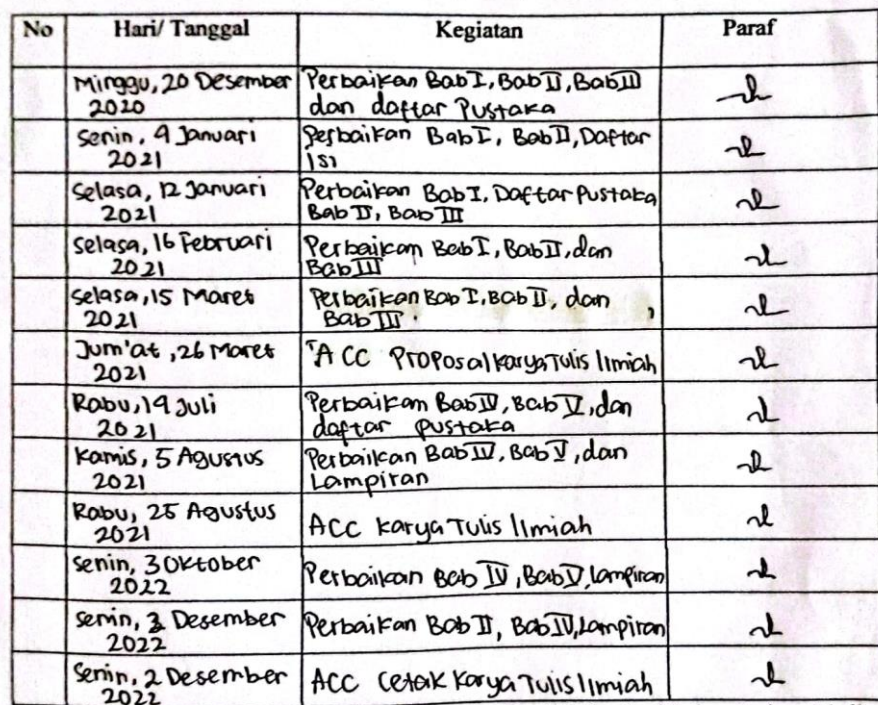 No Hari/ Tanggal Kegiatan Paraf
Minggu, 20 Desember 2020 Perbaikan Bab I, Bab II, Bab III
dan daftar Pustaka
Senin, 4 Januari 2021 Perbaikan Bab I, Bab II, Daftar
Isi
Selasa, 12 Januari 2021 Perbaikan Bab I, Daftar Pustaka
Bab II, Bab III
Selasa, 16 Februari 2021 Perbaikan Bab I, Bab II, dan
Bab III
Selasa, 15 Maret 2021 Perbaikan Bab I, Bab II, dan
Bab III.
Jum'at, 26 Maret 2021 ACC Proposal Karya Tulis Ilmiah
Rabu, 14 Juli 2021 Perbaikan Bab IV, Bab V, dan
daftar pustaka
Kamis, 5 Agustus 2021 Perbaikan Bab IV, Bab V, dan
Lampiran
Rabu, 25 Agustus 2021 ACC Karya Tulis Ilmiah
Senin, 3 Oktober 2022 Perbaikan Bab IV, Bab V, lampiran
Senin, Desember 2022 Perbaikan Bab II, Bab IV, Lampiran
Senin, 2 Desember 2022 ACC Cetak Karya Tulis Ilmiah